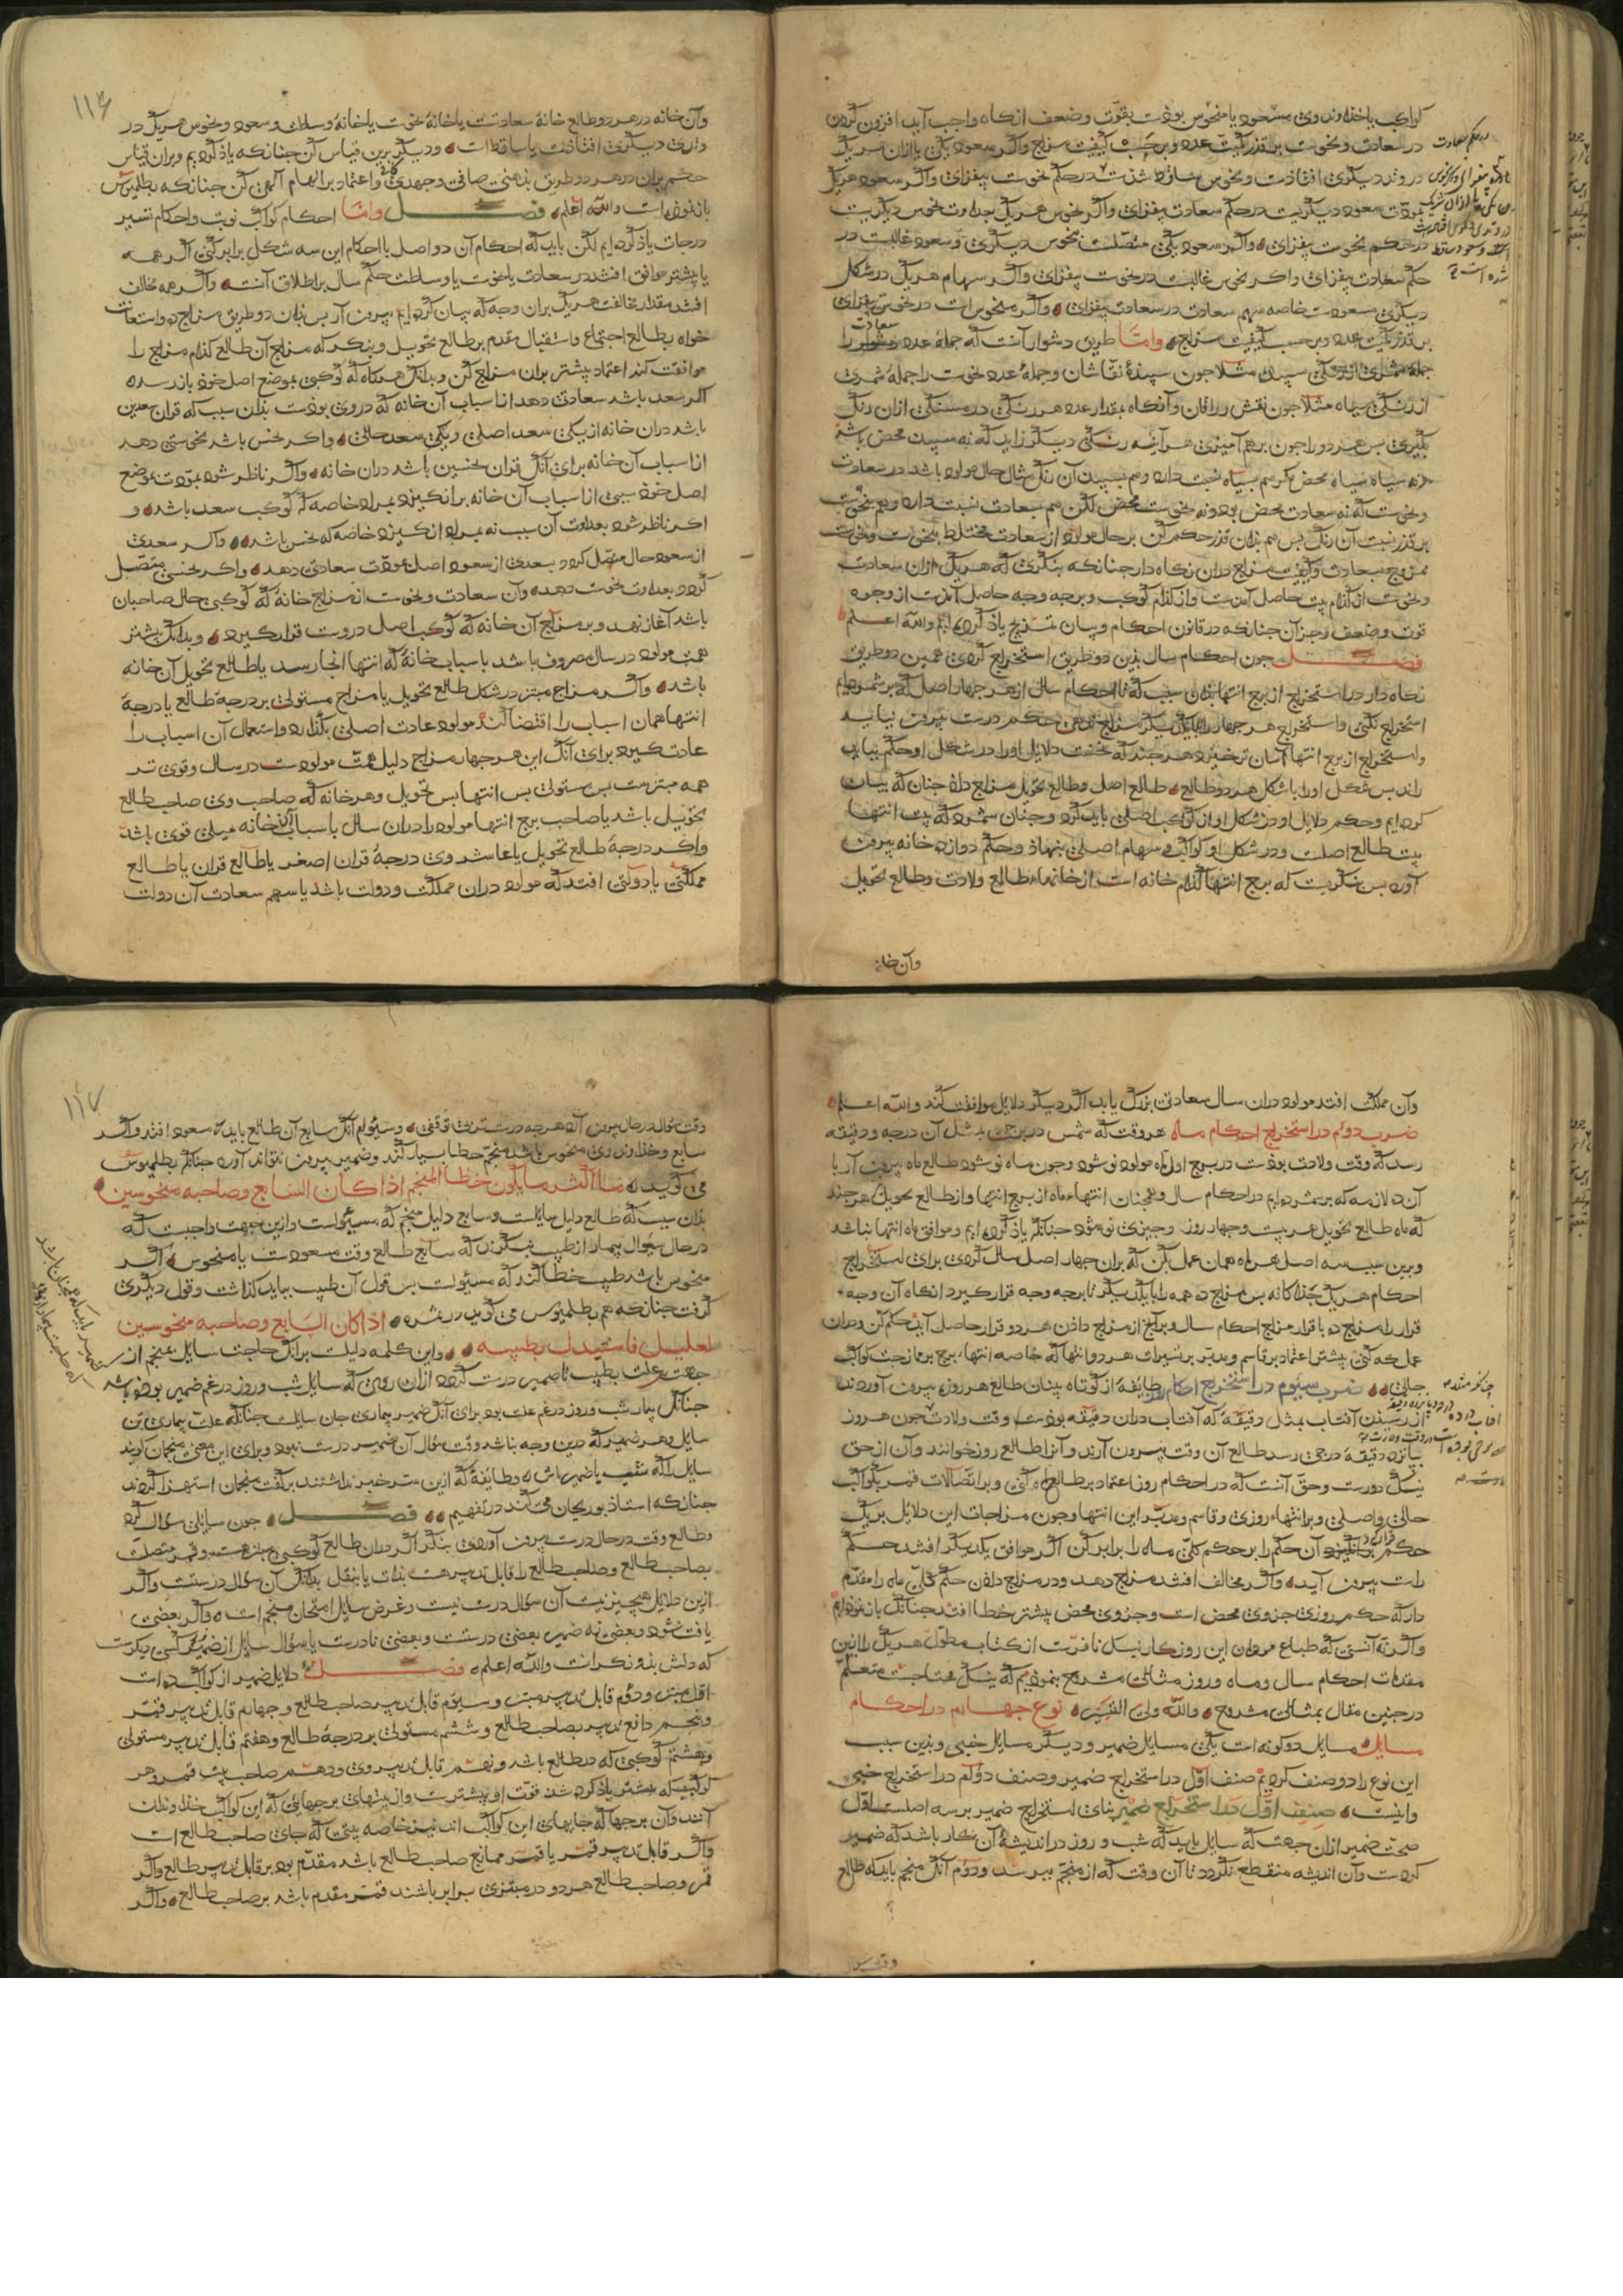 کواکب یا خذاوند وی مسعود یا منحوس بوذست بقوّت وضعف انکاه واجب آید افزون کردن
در سعادت ونحوست بر قذر کمّیّت عدد وبر حسب کیفیّت مزاج واکر سعود یکی با ازان هر یک
در وتد دیکری افتاذست ونحوس ساقط شذست در حکم نحوست بیفزای واکر سعود هر یک
بموذّت سعود دیکریست در حکم سعادت بیفزای واکر نحوس هر یک بعداوت نحوس دیکریست
در حکم نحوست بیفزای واکر سعود یکی متّصلست بنحوس دیکری وسعود غالبست در
حکم سعادت بیفزای واکر نحس غالبست در نحوست بیفزای واکر سهام هر یک در شکل
دیکری مسعودست خاصه سهم سعادت در سعادت بیفزای واکر منحوس است در نحوست بیفزای
بر قذر کمّیّت عدد وبر حسب کیفیّت مزاج وامّا طریق دشوار آنست که جملهٔ عدد سعادت را
سپید مثلا جون سپیدهٔ نقّاشان وجملهٔ عدد نحوست را جمله شمری
از رنکی سیاه مثلا جون نقش ورّاقان وآنکاه بمقدار عدد هر رنکی درمسنکی ازان رنک
بکیری بس هر دو را جون برهم آمیزی هر آینه رنکی دیکر زاید که نه سپید محض باشذ
ونه سیاه محض کر هم بسیاه نسبت دارد وهم بسپید آن رنک مثال حال مولود باشد در سعادت
ونحوست که نه سعادت محض بود ونه نحوست محض لکن هم بسعادت نسبت دارد وهم بنحوست
بر قذر نسبت آن رنک بس هم بذان قذر حکم کن بر حال مولود از سعادت مختلط بنحوست ونحوست
ممزوج بسعادت وکیفیت مزاج دران نکاه دار جنانکه بنکری که هر یک ازان سعادت
ونحوست از کذام بیت حاصل آمذست واز کذام کوکب وبر جه وجه حاصل آمذست از وجوه
قوت وضعف وجز آن جنانکه در قانون احکام وبیان تسزیج یاذ کرده‌ایم والله اعـلـم
فصـــل جون احکام سال بذین دو طریق استخراج کردی همین دو طریق
نکاه دار در استخراج از برج انتها بذان سبب که تا احکام سال از هر جهار اصل که بر شمرده‌ایم
استخراج نکنی واستخراج هر جهار را با یکدیکر مزاج ندهی حکم درست بیرون نیاید
واستخراج از برج انتها آسان ترخیزد هر جند که نخست دلایل او را در شکل او حکم بباید
راند بس شکل او را با شکل هر دو طالع طالع اصل وطالع تحویل مزاج داذ جنان که بیان
کرده‌ایم وحکم دلایل او در شکل او از کواکب اصلی باید کرد وجنان شمرد که بیت انتها
بیت طالع اصلست ودر شکل او کواکب وسهام اصلی بنهاذ وحکم دوازده خانه بیرون
آورد بس بنکریست که برج انتها کذام خانه است از خانهاء طالع ولادت وطالع تحویل
وآن خانه
۱۱۶
وآن خانه در هر دو طالع خانهٔ سعادتست یا خانهٔ نحوست یا خانهٔ وسطست وسعود ونحوس هر یک در
وتد دیکری افتاذست یا ساقط است ودیکر برین قیاس کن جنانکه یاذ کرده‌یم وبران قیاس
حکم بران در هر دو طریق بذهنی صافی وجهدی واعتماد بر الهام الهی کن جنانکه بطلمیوس
باز نموذه است والله اعلم فصـــل وامّا احکام کواکب نوبت واحکام تسییر
درجات یاذ کرده‌ایم لکن باید که احکام آن دو اصل با احکام این سه شکل برابر کنی اکر همه
یا بیشتر موافق افتد در سعادت یا نحوست یا وسلطت حکم سال بر اطلاق آنست واکر همه مخالف
افتد مقدار مخالفت هر یک بران وجه که بیان کرده‌ایم بیرون آر بس بذان دو طریق مزاج ده واستعانت
خواه بطالع اجتماع واستقبال مقدم بر طالع تحویل وبنکر که مزاج آن طالع کذام مزاج را
موافقت کند اعتماد بیشتر بران مزاج کن وبدانک هرکاه که کوکبی بموضع اصل خوذ باز رسد
اکر سعد باشد سعادتی دهد از اسباب آن خانه که در وی بوذست بذان سبب که قران سعدین
باشد دران خانه از یکی سعد اصلی ویکی سعد حالی واکر نحس باشد نحوستی دهد
از اسباب آن خانه برای آنک قران نحسین باشد دران خانه واکر ناظر شود بموذّت بموضع
اصل خوذ سببی از اسباب آن خانه برانکیزد بمراد خاصه که کوکب سعد باشد و
اکر ناظر شود بعداوت آن سبب نه بمراد انکیزد خاصه که نحس باشد واکر سعدی
از سعود حال متصل کردد بسعدی از سعود اصل بموذّت سعادتی دهد واکر نحسی متّصل
کردد بعداوت نحوست دهد وآن سعادت ونحوست از مزاج خانهٔ که کوکبی بحال صاحبان
باشد آغاز نهد وبر مزاج آن خانه که کوکب اصل دروست قرار کیرد وبدانک بیشتر
همّت مولود در سال مصروف باشد باسباب خانهٔ که انتها انجا رسد یا طالع تحویل آن خانه
باشد واکر مزاج مبتز در شکل طالع تحویل یا مزاج مستولی بر درجهٔ طالع یا درجهٔ
انتها همان اسباب را اقتضا کند مولود عادت اصلی بکذارد واستعمال آن اسباب را
عادت کیرد برای آنک این هر جهار مزاج دلیل همّت مولودست در سال وقوی تر
همه مبتزست بس مستولی بس انتها بس تحویل وهر خانه که صاحب وی صاحب طالع
تحویل باشد یا صاحب برج انتها مولود را دران سال باسباب آن خانه میلی قوی باشد
واکر درجهٔ طالع تحویل یا عاشر وی درجهٔ قران اصغر یا طالع قران یا طالع
مملکتی یا دولتی افتد که مولود دران مملکت ودولت باشد یا سهم سعادت آن دولت
وآن مملکت افتد مولود دران سال سعادتی بزرک یابد اکر دیکر دلایل موافقت کند والله اعـلـم
ضرب دوم در استخراج احکام ماه هر وقت که شمس در برجی بمثل آن درجه ودقیقه
رسد که وقت ولادت بوذست در برج اول ماه مولود نو شود وجون ماه نو شود طالع ماه بیرون آر با
آن دلازمه که بر شمرده‌ایم در احکام سال وهمجنان انتهاء ماه از برج انتها واز طالع تحویل هر جند
که ماه طالع تحویل هر بیست وجهار روز وجیزی نو شود جنانکه یاذ کرده‌ایم وموافق ماه انتها نباشد
وبرین سبب سه اصل هر ماه همان عمل بکن که بران جهار اصل سال کردی برای استخراج
احکام هر یک جذاکانه بس مزاج ده همه را با یکدیکر تا بر جه وجه قرار کیرد انکاه آن وجه
قرار را مزاج ده با قرار مزاج احکام سال وبرآنج از مزاج داذن هر دو قرار حاصل آید حکم کن ودران
عمل که کنی بیشتر اعتماد بر قاسم ومدبّر بر تسییرات هر دو انتها که خاصه انتهاء برج بر ممازجت کواکب
حالی ضرب سیوم در استخراج احکام روز طایفهٔ از کوتاه بینان طالع هر روز بیرون آورده‌اند
از رسیذن آفتاب بمثل دقیقهٔ که آفتاب دران دقیقه بوذست وقت ولادت جون هر روز
بپانزده دقیقه درجی رسد طالع آن وقت بیرون آرند وآنرا طالع روز خوانند وآن از حق
نیک دورست وحق آنست که در احکام روز اعتماد بر طالع ماه کنی وبر اتّصالات قمر بکواکب
حالی واصلی وبر انتهاء روزی وقاسم ومدبّر این انتها وجون مزاجات این دلایل بر یک
حکم قرار داذند آن حکم را بر حکم کلّی ماه را برابر کن اکر موافق یکدیکر افتد حکم
راست بیرون آید واکر مخالف افتد مزاج دهد ودر مزاج داذن حکم کلّی ماه را مقدّم
دار که حکم روزی جزوی محض است وجزوی محض بیشتر خطا افتد جنانک باز نموذه‌ایم
واکر نه آنستی که طباع مردمان این روزکار نیک نافرست از کتاب مطوّل هر یک را ازین
مقدمات احکام سال وماه وروز مثالی مشروح بنموذیم که نیک محتاجست متعلّم
در جنین مقال بمثالی مشروح والله ولی التیسیر نوع جهارم در احکام
مسایل مسایل دو کونه است یکی مسایل ضمیر ودیکر مسایل خبی وبذین سبب
این نوع را دو صنف کردیم صنف اوّل در استخراج ضمیر وصنف دوم در استخراج خبی
واینست صنف اوّل در استخراج ضمیر بنای استخراج ضمیر بر سه اصلست اوّل
صحّت ضمیر ازان جهت که سایل باید که شب وروز در اندیشهٔ آن کار باشد که ضمیر
کردست وآن اندیشه منقطع نکردد تا آن وقت که از منجّم ببرسد ودوّم آنک منجم باید که طالع
وقت سوال
۱۱۷
وقت سوال در حال بیرون آرد هر جه درست‌ترین دقیقتی وسیوّم آنک سابع آن طالع باید که مسعود افتد واکر
سابع وخذاوند وی منحوس باشد منجّم خطا بسیار کند وضمیر بیرون نتواند آورد جنانکه بطلمیوس
می کوید ما اکثر مایکون خطا المنجم اذا کان السّابع وصاحبه منحوسین
بذان سبب که طالع دلیل سایلست وسابع دلیل منجّم که مسئولست وازین جهت واجبست که
در حال سوال بیمار از طبیب بنکرند که سابع طالع وقت مسعودست یا منحوس اکر
منحوس باشد طبیب خطا کند که مسئولست بس قول آن طبیب بباید کذاشت وقول دیکری
کرفت جنانکه هم بطلمیوس می کوید در ثمره اذا کان السّابع وصاحبه منحوسین
لعلیل فاستبدل بطبیبه واین کلمه دلیلست برانک حاجت سایل بمنجم از
جهت علت بطبیب تا ضمیر درست کردد ازان روی که سایل شب وروز در غم ضمیر بوذه باشد
جنانک بیمار شب وروز در غم علت بود برای آنک ضمیر بیماری جان سایلست جنانکه علّت بیماری تن
سایل وهر ضمیر که برین وجه نباشد وقت سؤال آن ضمیر درست نبود وبرای این معنی منجمان کویند
سایل را که شب با ضمیر باش وطایفهٔ که ازین سرّ خبر نداشتند برکفت منجمان استهزا کردند
جنانکه استاذ بوریحان می کند در تفهیم فصـــل جون سایلی سوال کرد
وطالع وقت در حال درست بیرون آوردی بنکر اکر دران طالع کوکبی مبتز هست وقمر متصلست
بصاحب طالع وصاحب طالع را قابل تدبیر هست بذات یا بنقل بدانک آن سوال درستست واکر
ازین دلایل هیچیز نیست آن سوال درست نیست وغرض سایل امتحان منجم است واکر بعضی
یافت شود وبعضی نه ضمیر بعضی درستست وبعضی نادرست یا سؤال سایل از ضمیر کسی دیکرست
که دلش بذو نکرانست والله اعلم فصـــل دلایل ضمیر از کواکب ده است
اوّل مبتز ودوّم قابل تدبیر مبتز وسیوّم قابل تدبیر صاحب طالع وجهارم قابل تدبیر قمر
وپنجم دافع تدبیر بصاحب طالع وششم مستولی بر درجهٔ طالع وهفتم قابل تدبیر مستولی
وهشتم کوکبی که در طالع باشد ونهم قابل تدبیر وی ودهم صاحب بیت قمر وهر
کوکبی که بیشتر یاذ کرده شذ قوّت او بیشترست واز بیتهای برجهایی که این کواکب خذاوندان
آنند وآن برجها که جایهای این کواکب اند نیز خاصه بیتی که جای صاحب طالع است
واکر قابل تدبیر قمر یا قمر ممازج صاحب طالع باشد مقدّم بود بر قابل تدبیر طالع واکر
قمر وصاحب طالع هر دو در مبتزی برابر باشند قمر مقدم باشد بر صاحب طالع واکر